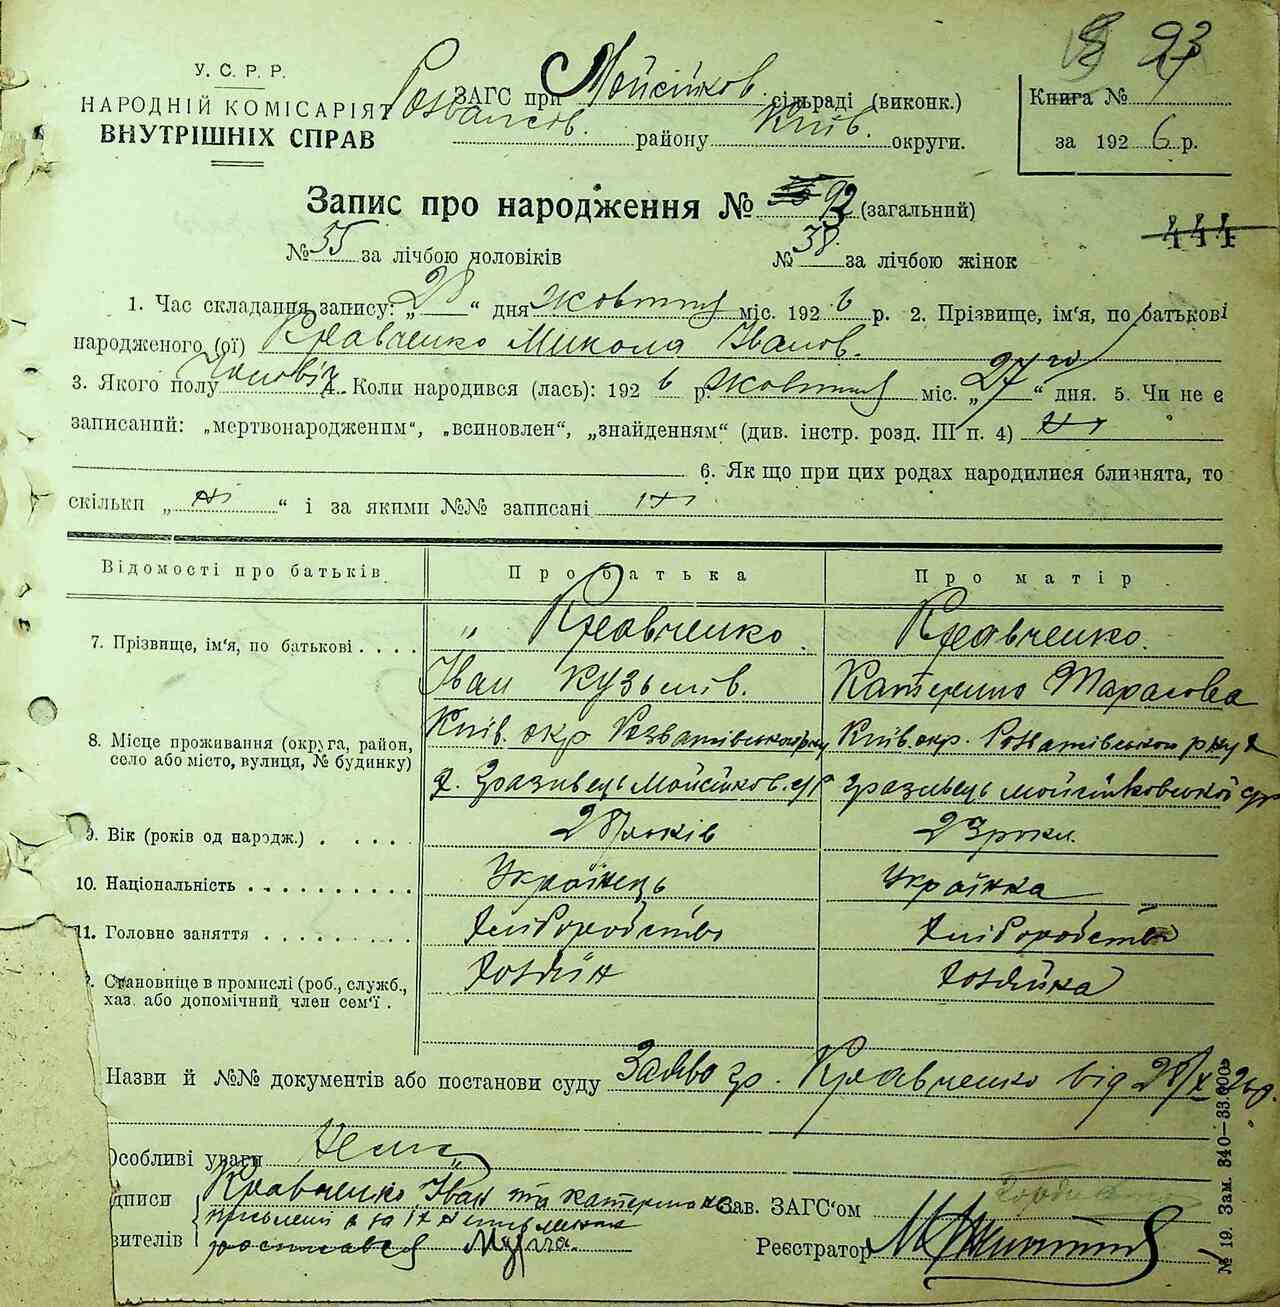 У. С. Р. Р.
НАРОДНІЙ КОМІСАРІЯТ
ВНУТРІШНІХ СПРАВ
ЗАГС при Мойсійков. сільраді (виконк.)
Розважев. району Київ. округи.
Книга №
за 1926 р.
93
Запис про народження № 93 (загальний)
444
№ 55 за лічбою чоловіків № 38 за лічбою жінок
1. Час складання запису: „28“ дня жовтня міс. 1926 р. 2. Прізвище, ім'я, по батькові
народженого (ої) Кравченко Микола Іванов.
3. Якого полу Чоловіч. 4. Коли народився (лась): 1926 р. жовтня міс. „27го“ дня. 5. Чи не є
записаний: „мертвонародженим“, „всиновлен“, „знайденням“ (див. інстр. розд. III п. 4) ні
6. Як що при цих родах народилися близнята, то
скільки „ні“ і за якими №№ записані ні
Відомості про батьків Про батька Про матір
7. Прізвище, ім'я, по батькові . . . . „ Кравченко Кравченко.
Іван Кузьмів. Катерина Тарасова
8. Місце проживання (округа, район, село або місто, вулиця, № будинку) Київ. окр Розважівського р-ну Київ. окр. Розважівського р-ну х
х. Зразивець Мойсійков. с/р Зразивець Мойсійковської с/р
9. Вік (років од народж.) . . . . . 28 років 23 роки.
10. Національність . . . . . . . . . . Українець Українка
11. Головне заняття . . . . . . . . . Хліборобство Хліборобство
Становище в промислі (роб., служб., хаз. або допомічний член сем'ї . Хозяїн Хозяйка
Назви й №№ документів або постанови суду Заява гр. Кравченко від 28/X 26 р.
Особливі уваги Нема
Кравченко Іван та Катерина
Зав. ЗАГС'ом
расписався
Реєстратор
№ 19. Зам. 340—33.000